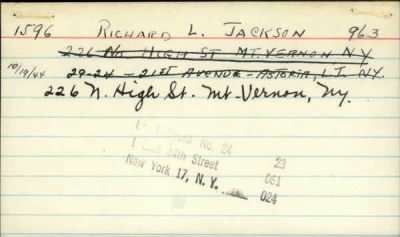 1596 RICHARD L. JACKSON 963
226 No. HIGH ST MT. VERNON NY
10/19/44 29-24 - 21ST AVENUE - ASTORIA, L.I. N.Y.
226 N. High St. Mt. Vernon, Ny.
No. 24
44th Street 23
New York 17, N. Y. 061
024